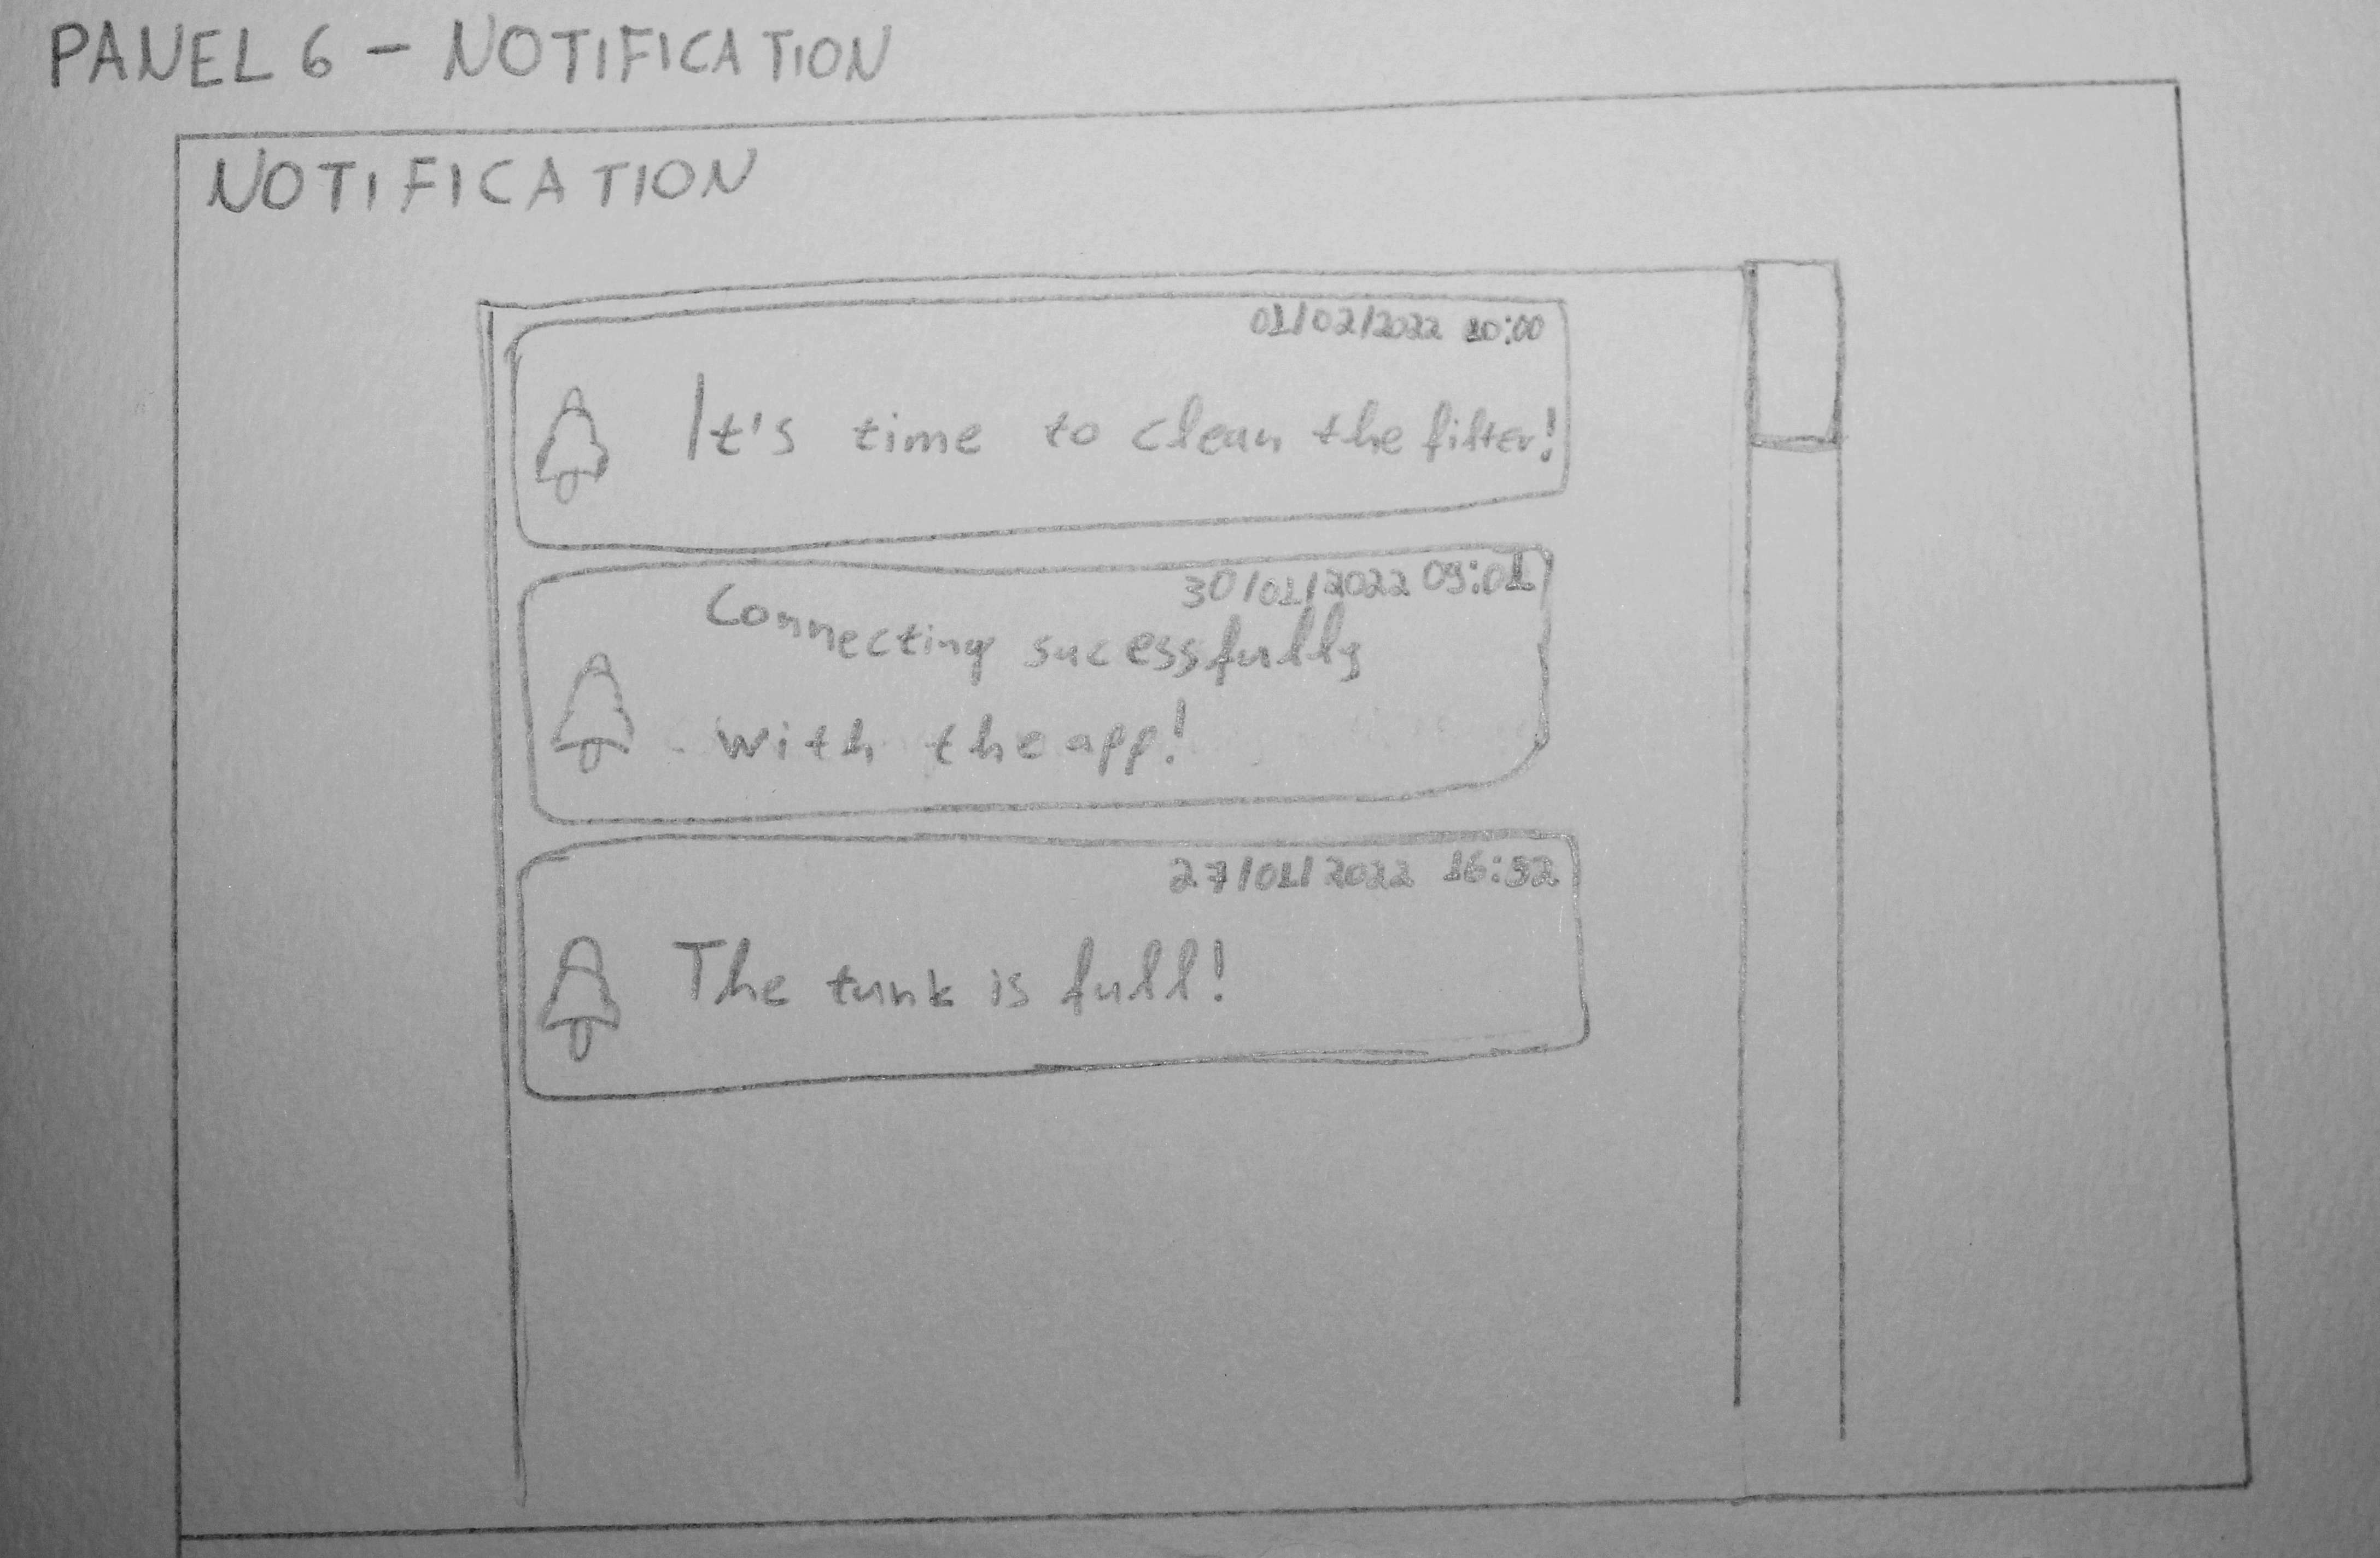 PANEL 6 - NOTIFICATION
NOTIFICATION
01/02/2022 10:00
It's time to clean the filter!
30/01/2022 09:01
Connecting sucessfully
with the app!
27/01/2022 16:32
The tank is full!